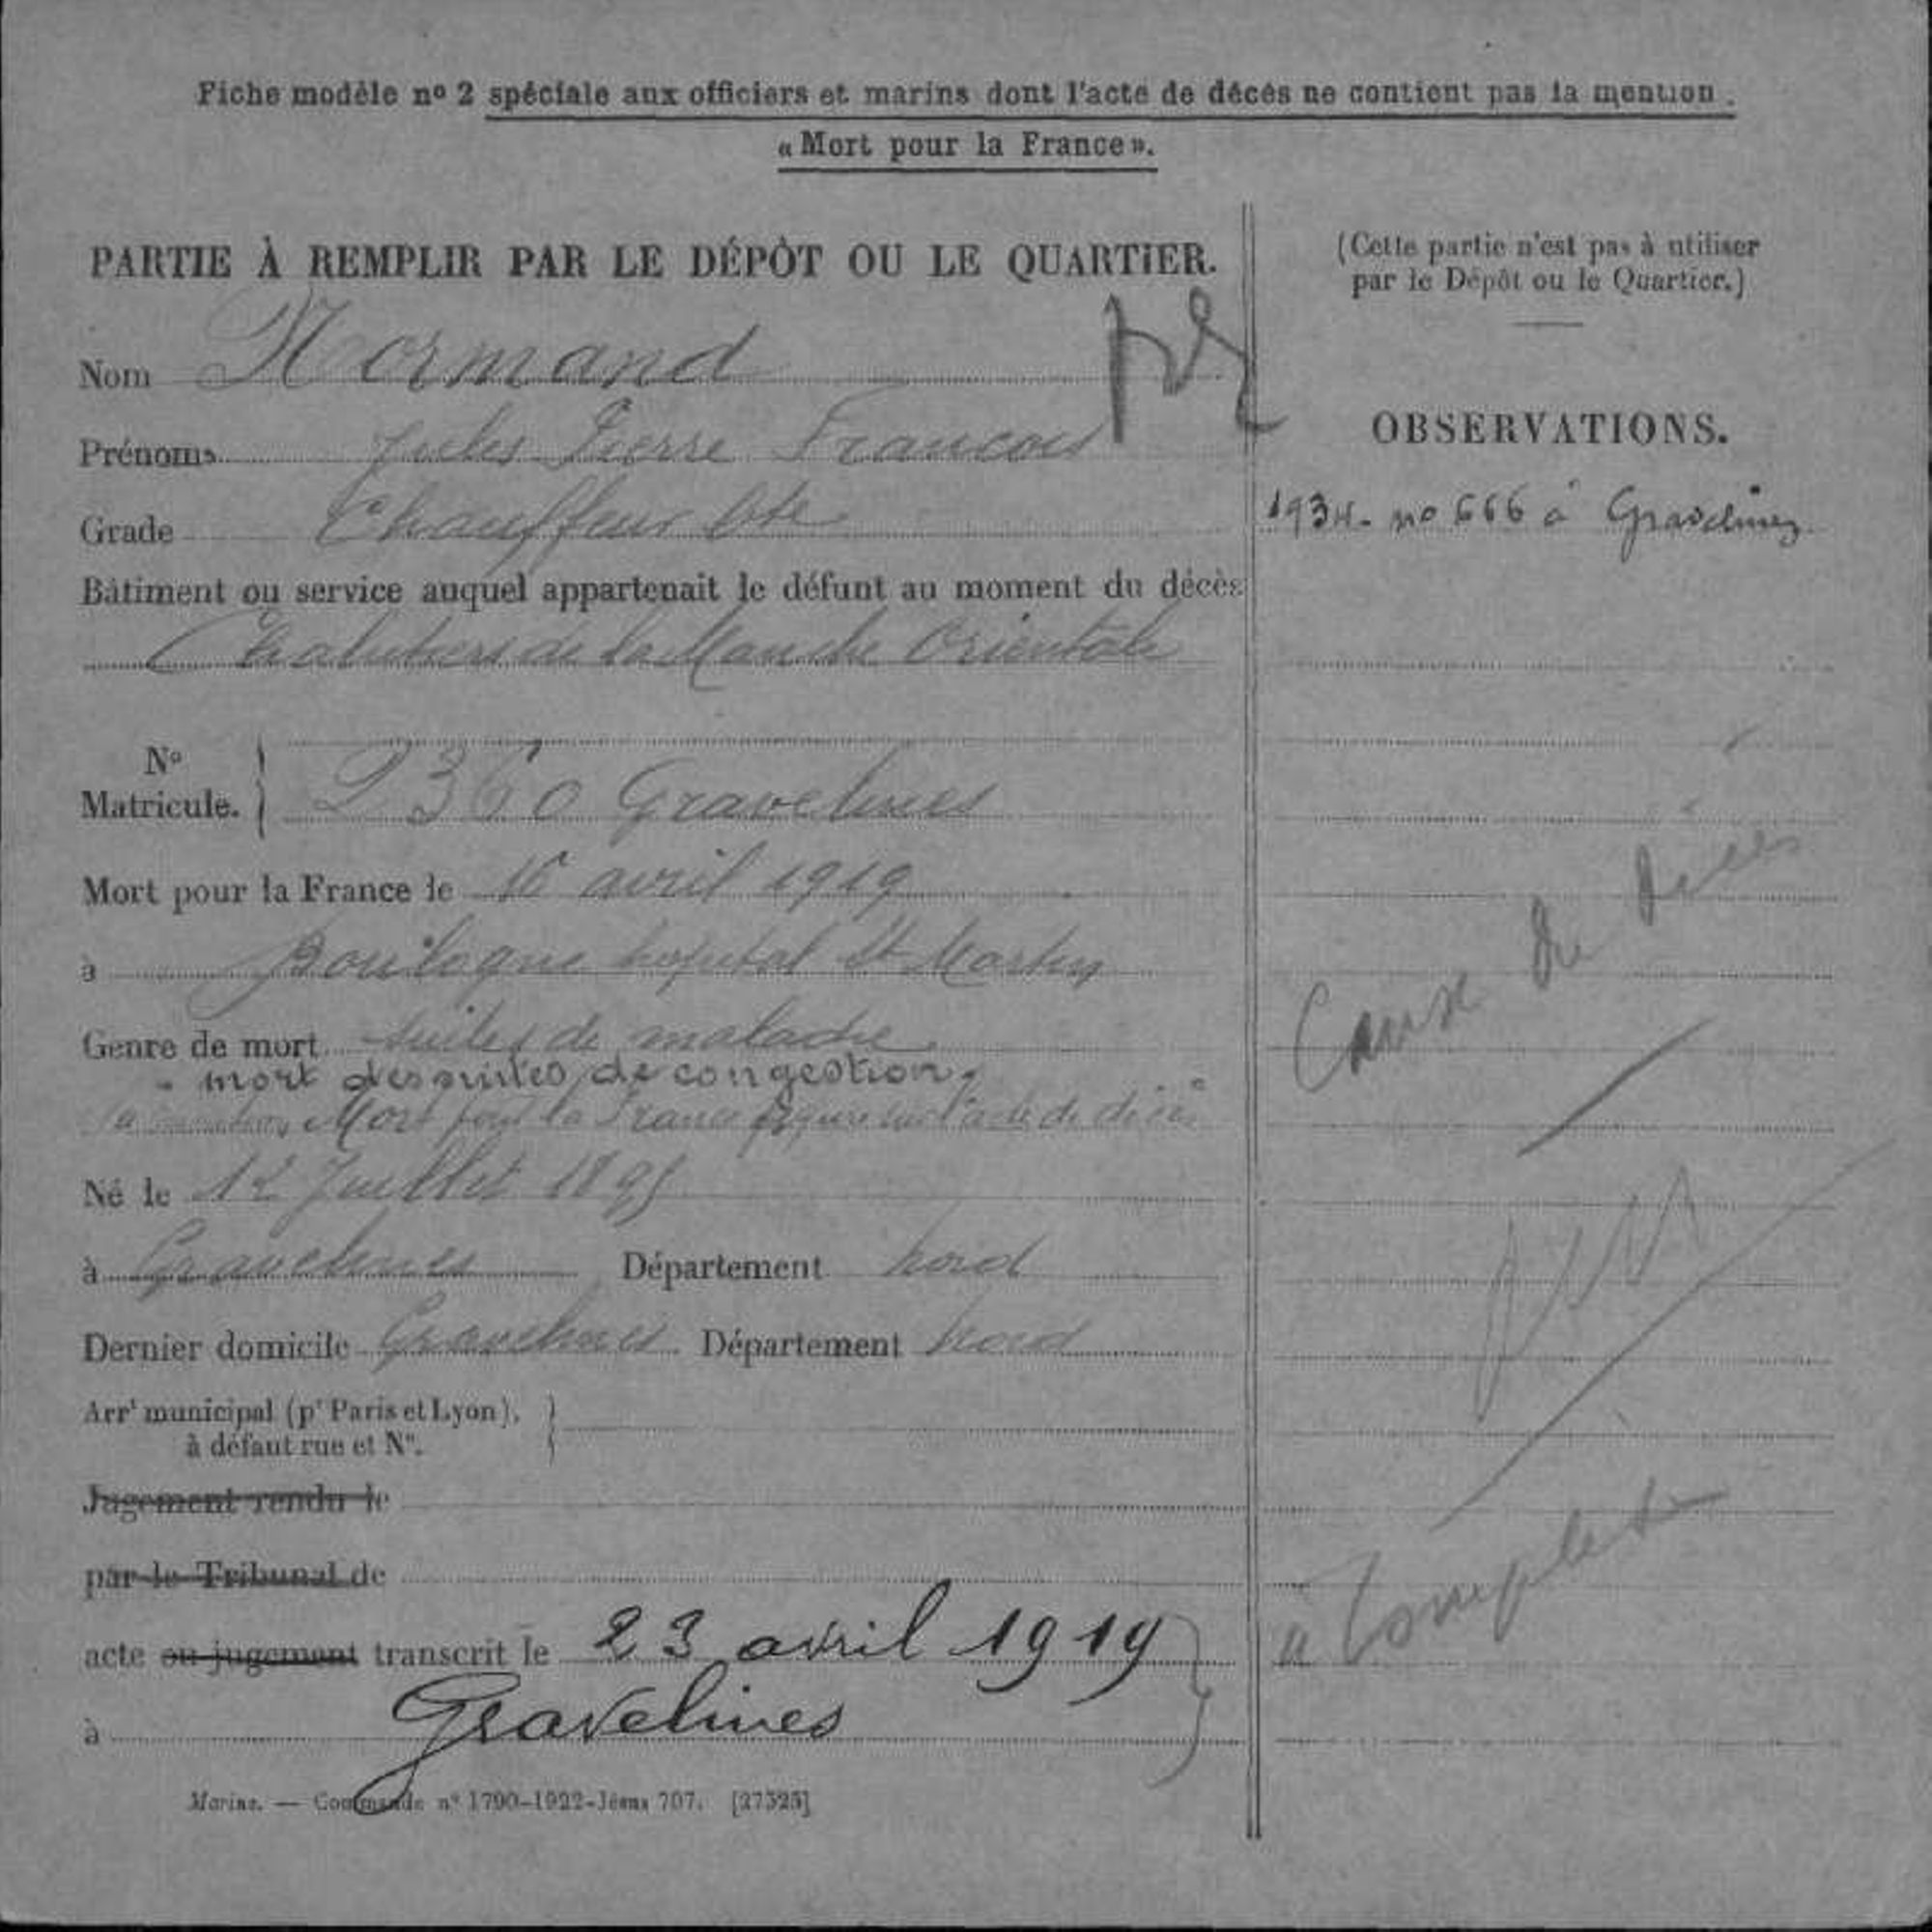 Fiche modèle nº 2 spéciale aux officiers et marins dont l'acte de décès ne contient pas la mention
« Mort pour la France ».
PARTIE À REMPLIR PAR LE DÉPÔT OU LE QUARTIER.
Nom Normand
Prénoms Jules Pierre Francois
Grade Chauffeur
Bâtiment ou service auquel appartenait le défunt au moment du décès
Chalutiers de la Manche Orientale
Nº
Matricule. 2360 Gravelines
Mort pour la France le 16 avril 1919
à Boulogne hopital St Martin
Genre de mort suites de maladie
- mort des suites de congestion.
la mention Mort pour la France figure sur l'acte de décès
Né le 12 Juillet 1895
à Gravelines Département Nord
Dernier domicile Gravelines Département Nord
Arrt municipal (pr Paris et Lyon),
à défaut rue et Nº.
Jugement rendu le
par le Tribunal de
acte ou jugement transcrit le 23 avril 1919
à Gravelines
Marine. — Commande nº 1790-1922-Jésus 707. [27325]
(Cette partie n'est pas à utiliser
par le Dépôt ou le Quartier.)
OBSERVATIONS.
1934- no 666 à Gravelines
Cause du décès
à Compléter